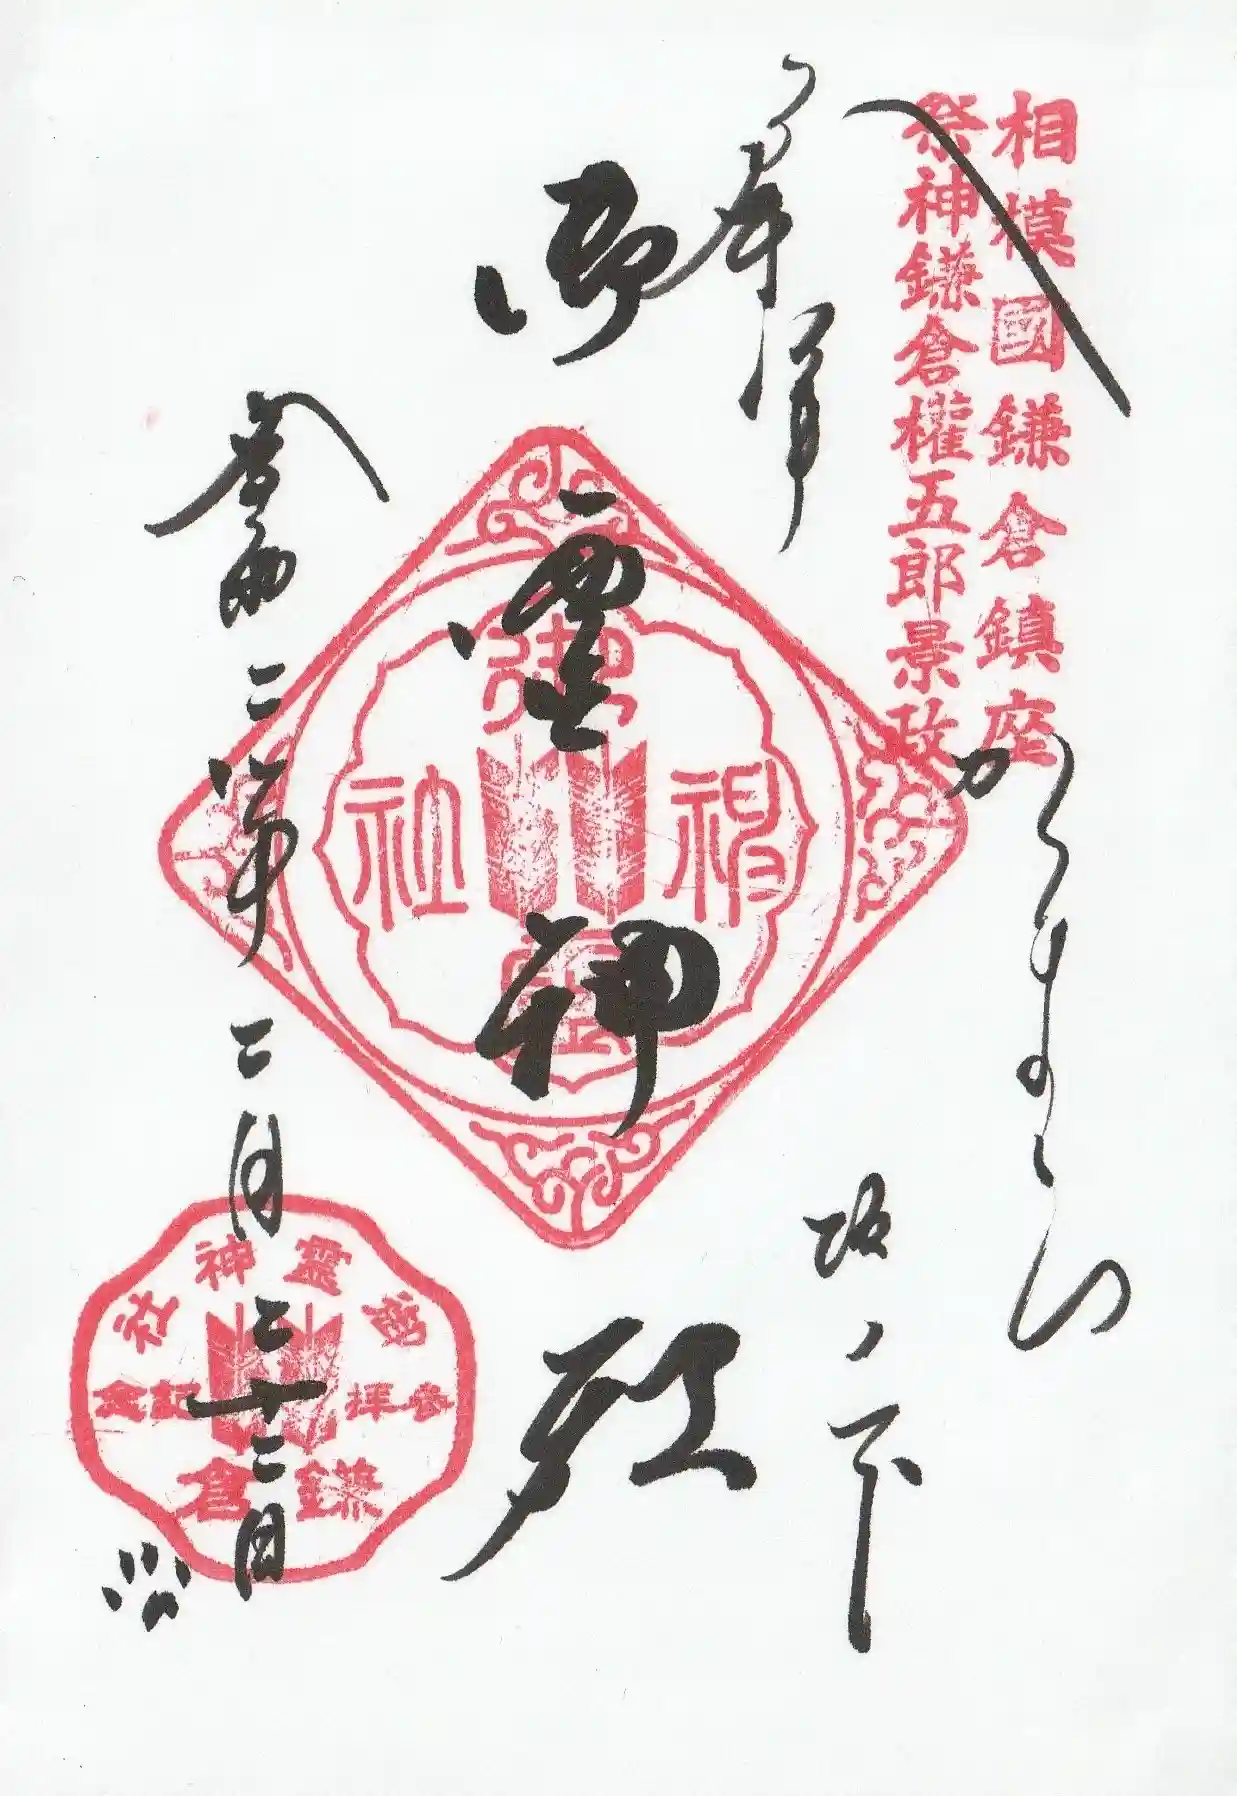 相模國鎌倉鎮座
祭神鎌倉權五郎景政
坂ノ下
奉拝
御霊神社
御靈神社
令和二年二月二十二日
御靈神社
参拝記念
鎌倉